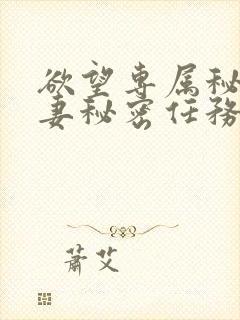 欲望专属秘
妻秘密任務
萧艾